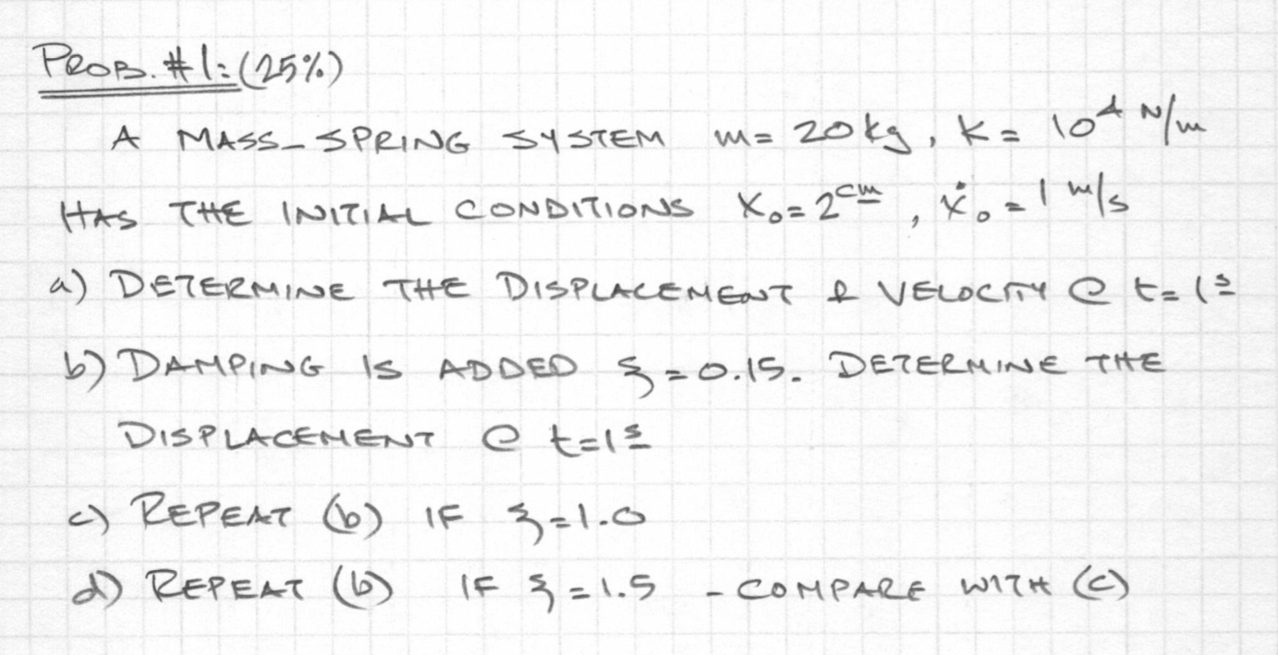 PROB. #1: (25%)
A MASS-SPRING SYSTEM m= 20kg, K= 10⁴ N/m
HAS THE INITIAL CONDITIONS X₀=2cm, ẋ₀=1 m/s
a) DETERMINE THE DISPLACEMENT & VELOCITY @ t=1s
b) DAMPING IS ADDED ξ=0.15. DETERMINE THE
DISPLACEMENT @ t=1s
c) REPEAT (b) IF ξ=1.0
d) REPEAT (b) IF ξ=1.5 - COMPARE WITH (C)